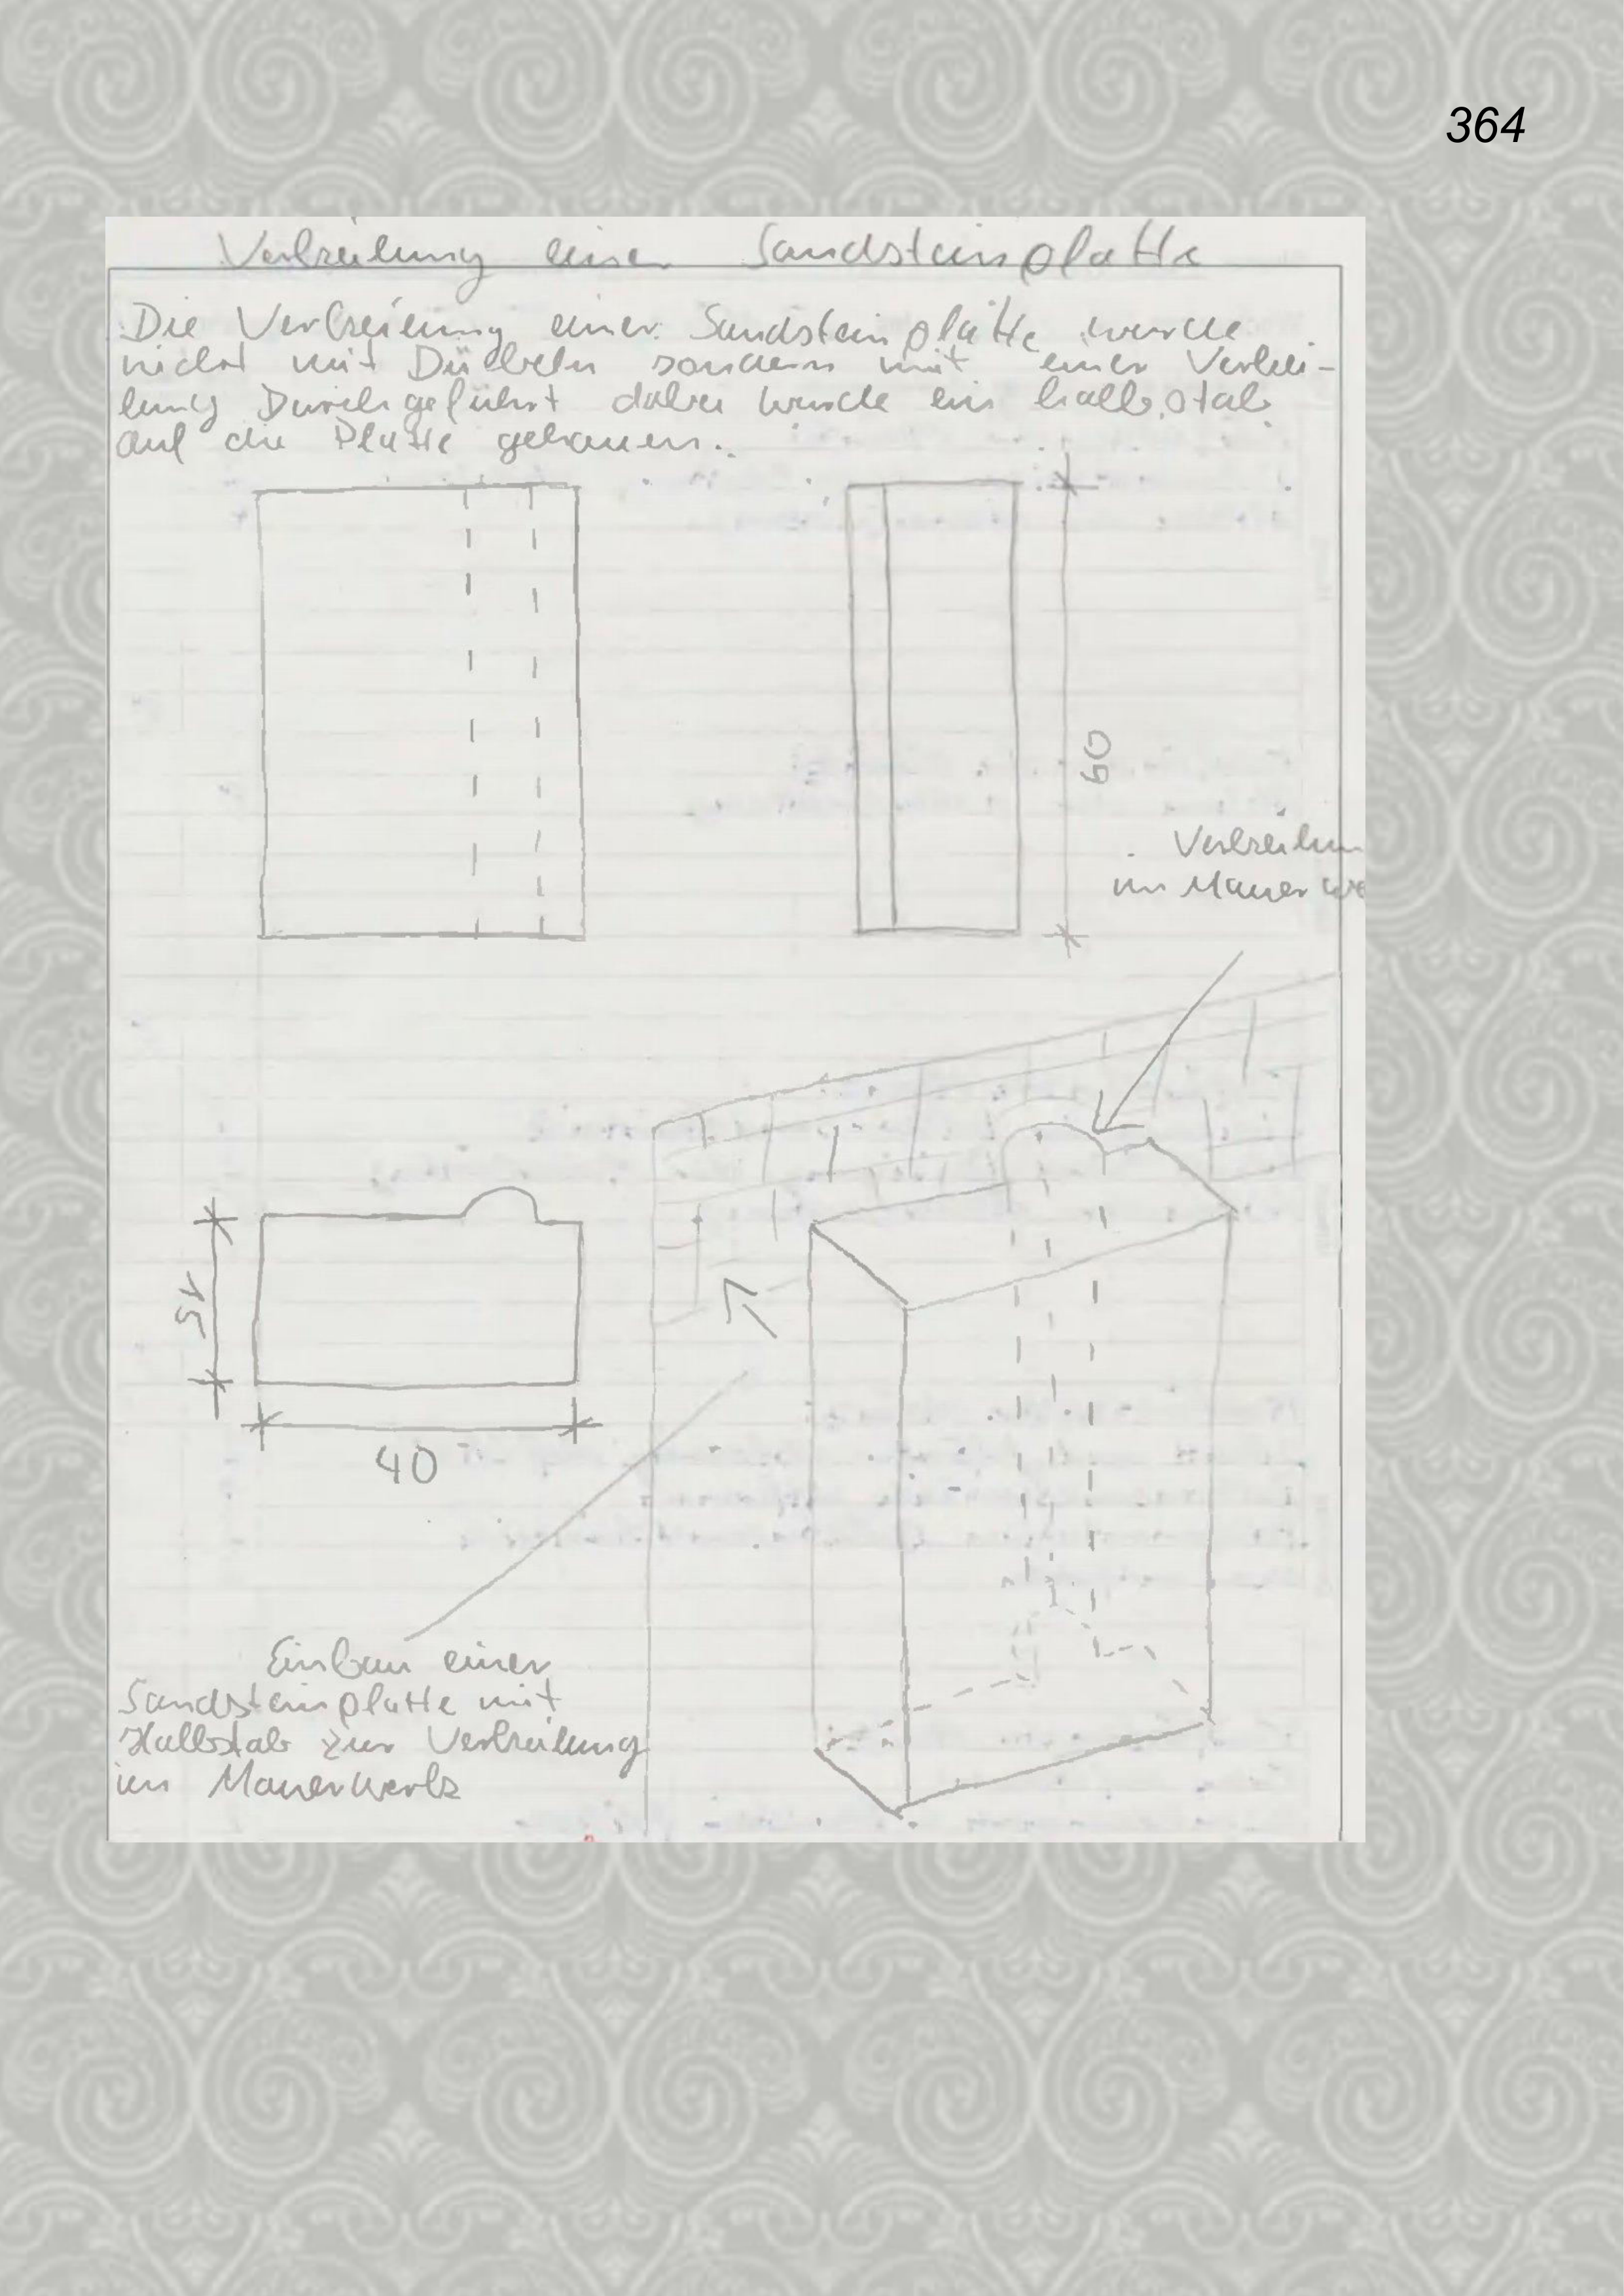 364
Verkeilung einer Sandsteinplatte
Die Verkeilung einer Sandsteinplatte wurde
nicht mit Dübeln sondern mit einer Verkei-
lung Durchgeführt dabei wurde ein halbstab
auf die Platte gehauen.
60
Verkeilun
im Mauerwe
15
40
Einbau einer
Sandsteinplatte mit
Halbstab zur Verkeilung
im Mauerwerk